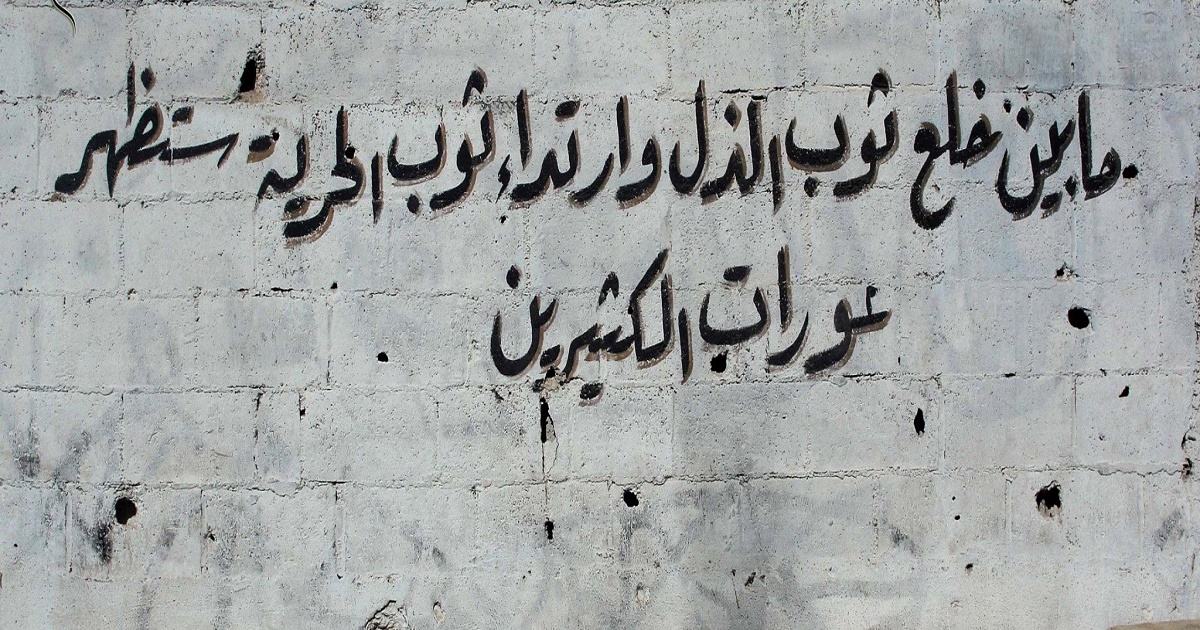 ما بين خلع ثوب الذل وارتداء ثوب الحرية ستظهر
عورات الكثيرين